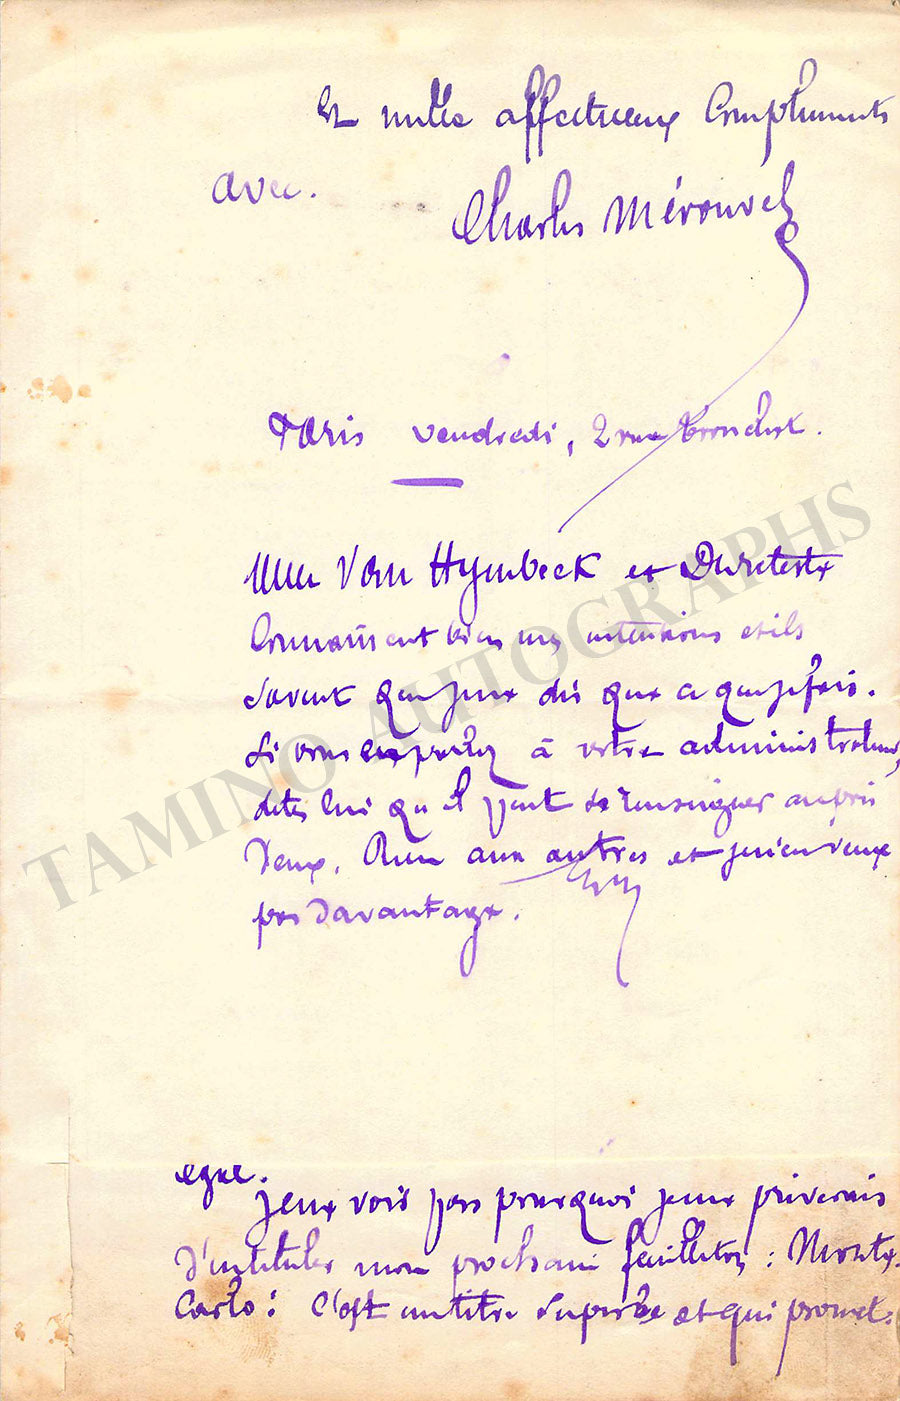 Et mille affectueux compliments
avec.
Charles Mérouvel
Paris vendredi, 2 rue Tronchet.
Van Hymbeck et
connaissent bien mes intentions et ils
savent que je ne dis que ce que je fais.
Si vous en parlez à votre administrateur,
dites lui qu'il peut se renseigner auprès
d'eux. Rien aux autres et je n'en veux
pas davantage.
ChM
TAMINO AUTOGRAPHS
egal.
Je ne vois pas pourquoi je me priverais
d'intituler mon prochain feuilleton : Monte-
Carlo : C'est un titre superbe et qui promet.